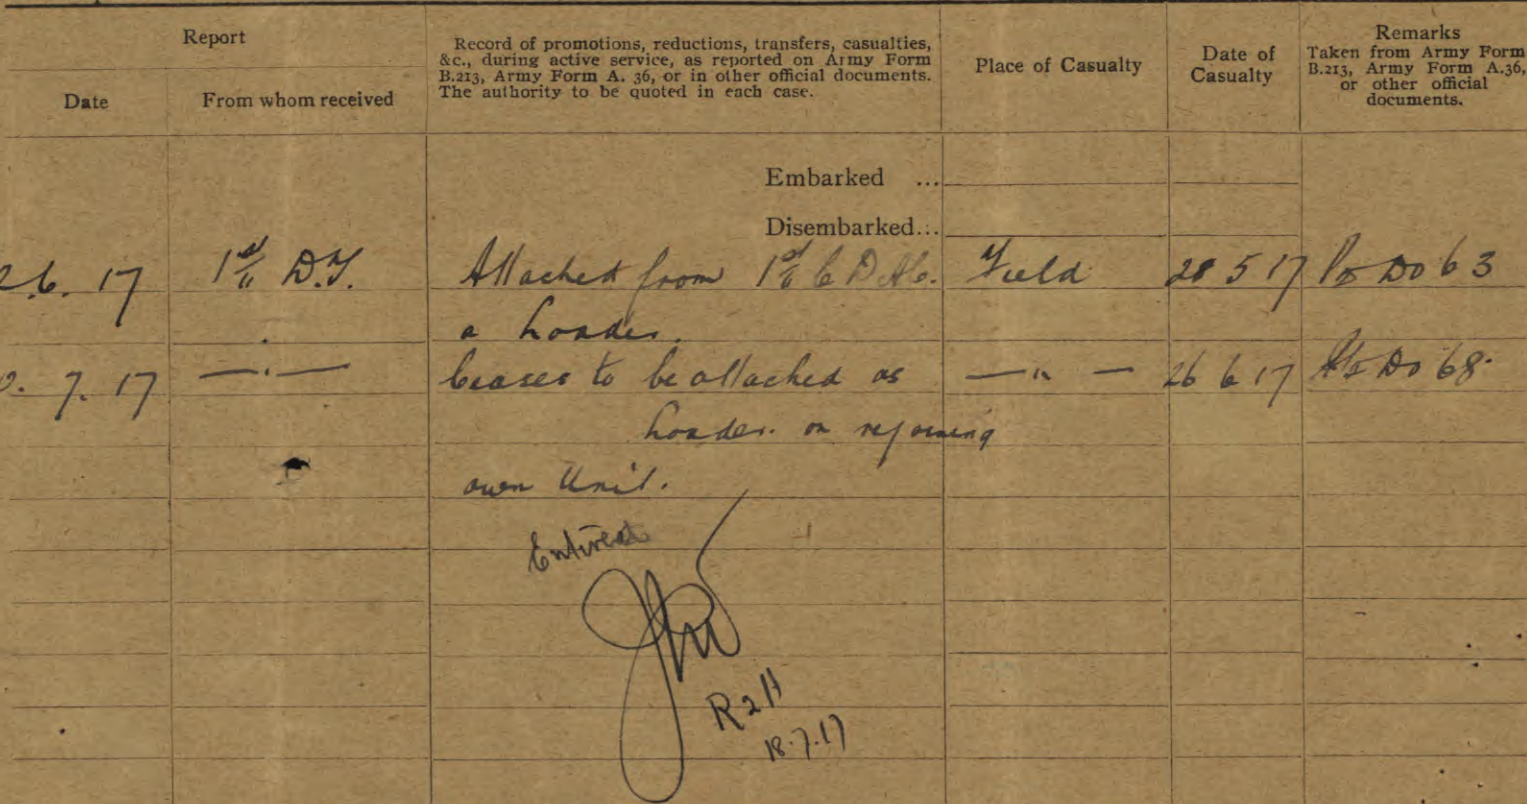 Report
Date
From whom received
Record of promotions, reductions, transfers, casualties,
&c., during active service, as reported on Army Form
B.213, Army Form A. 36, or in other official documents.
The authority to be quoted in each case.
Place of Casualty
Date of
Casualty
Remarks
Taken from Army Form
B.213, Army Form A.36,
or other official
documents.
Embarked ...
Disembarked...
2.6.17 1st D.Y. Attached from 1st Field 28 5 17 DO 63
a Loader.
7.17 —"— Ceases to be attached as —"— 26 6 17 DO 68.
Loader. on rejoining
own Unit.
Entered
R2H
18.7.17